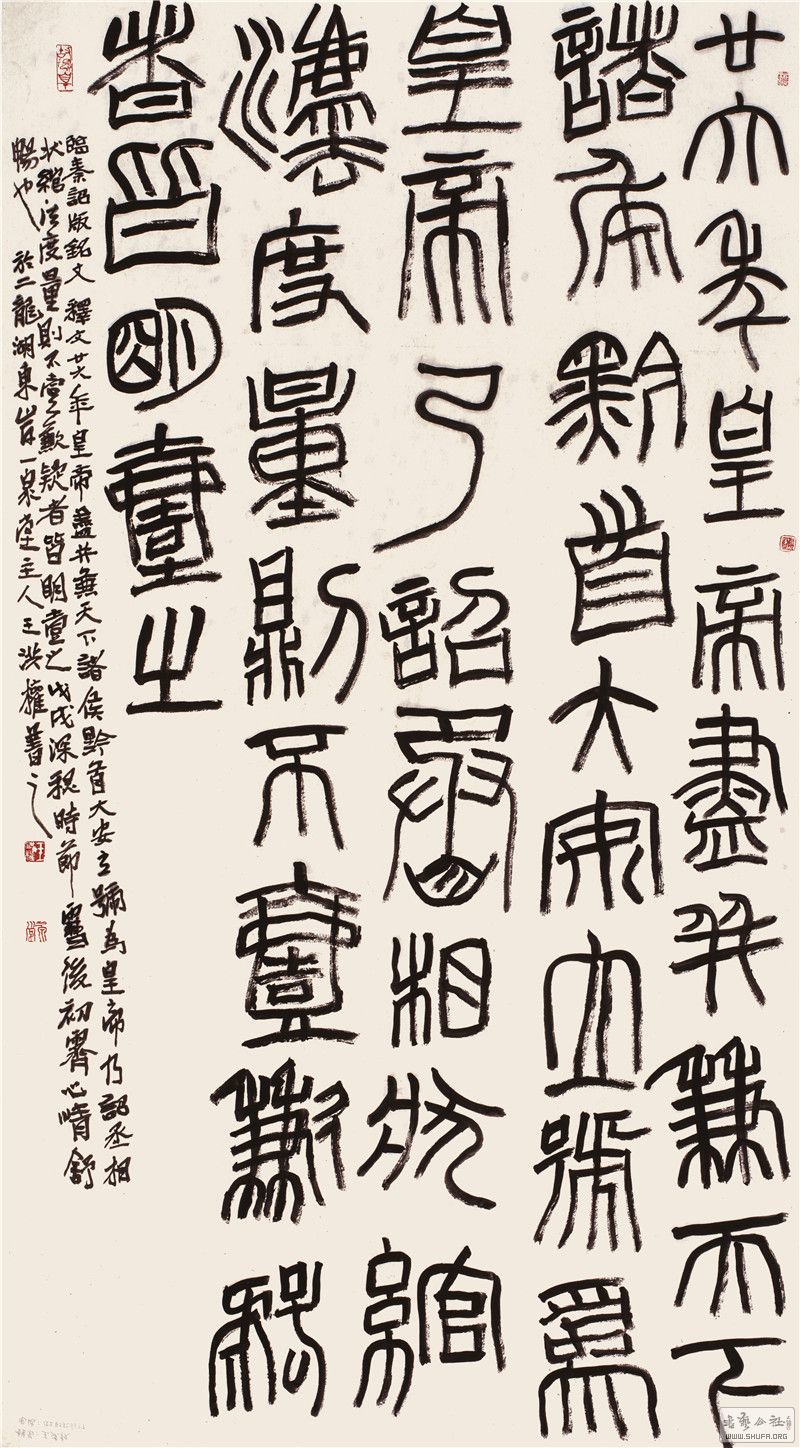 廿六年皇帝盡并兼天下
諸侯黔首大安立號為
皇帝乃詔丞相狀綰
灋度量則不壹歉疑
者皆明壹之
臨秦詔版銘文 釋文廿六年皇帝盡并兼天下諸侯黔首大安立號為皇帝乃詔丞相
狀綰法度量則不壹歉疑者皆明壹之戊戌深秋時節雪後初霽心情舒
暢也於二龍湖東岸一泉堂主人王洪權書之
书艺公社
WWW.SHUFA.ORG